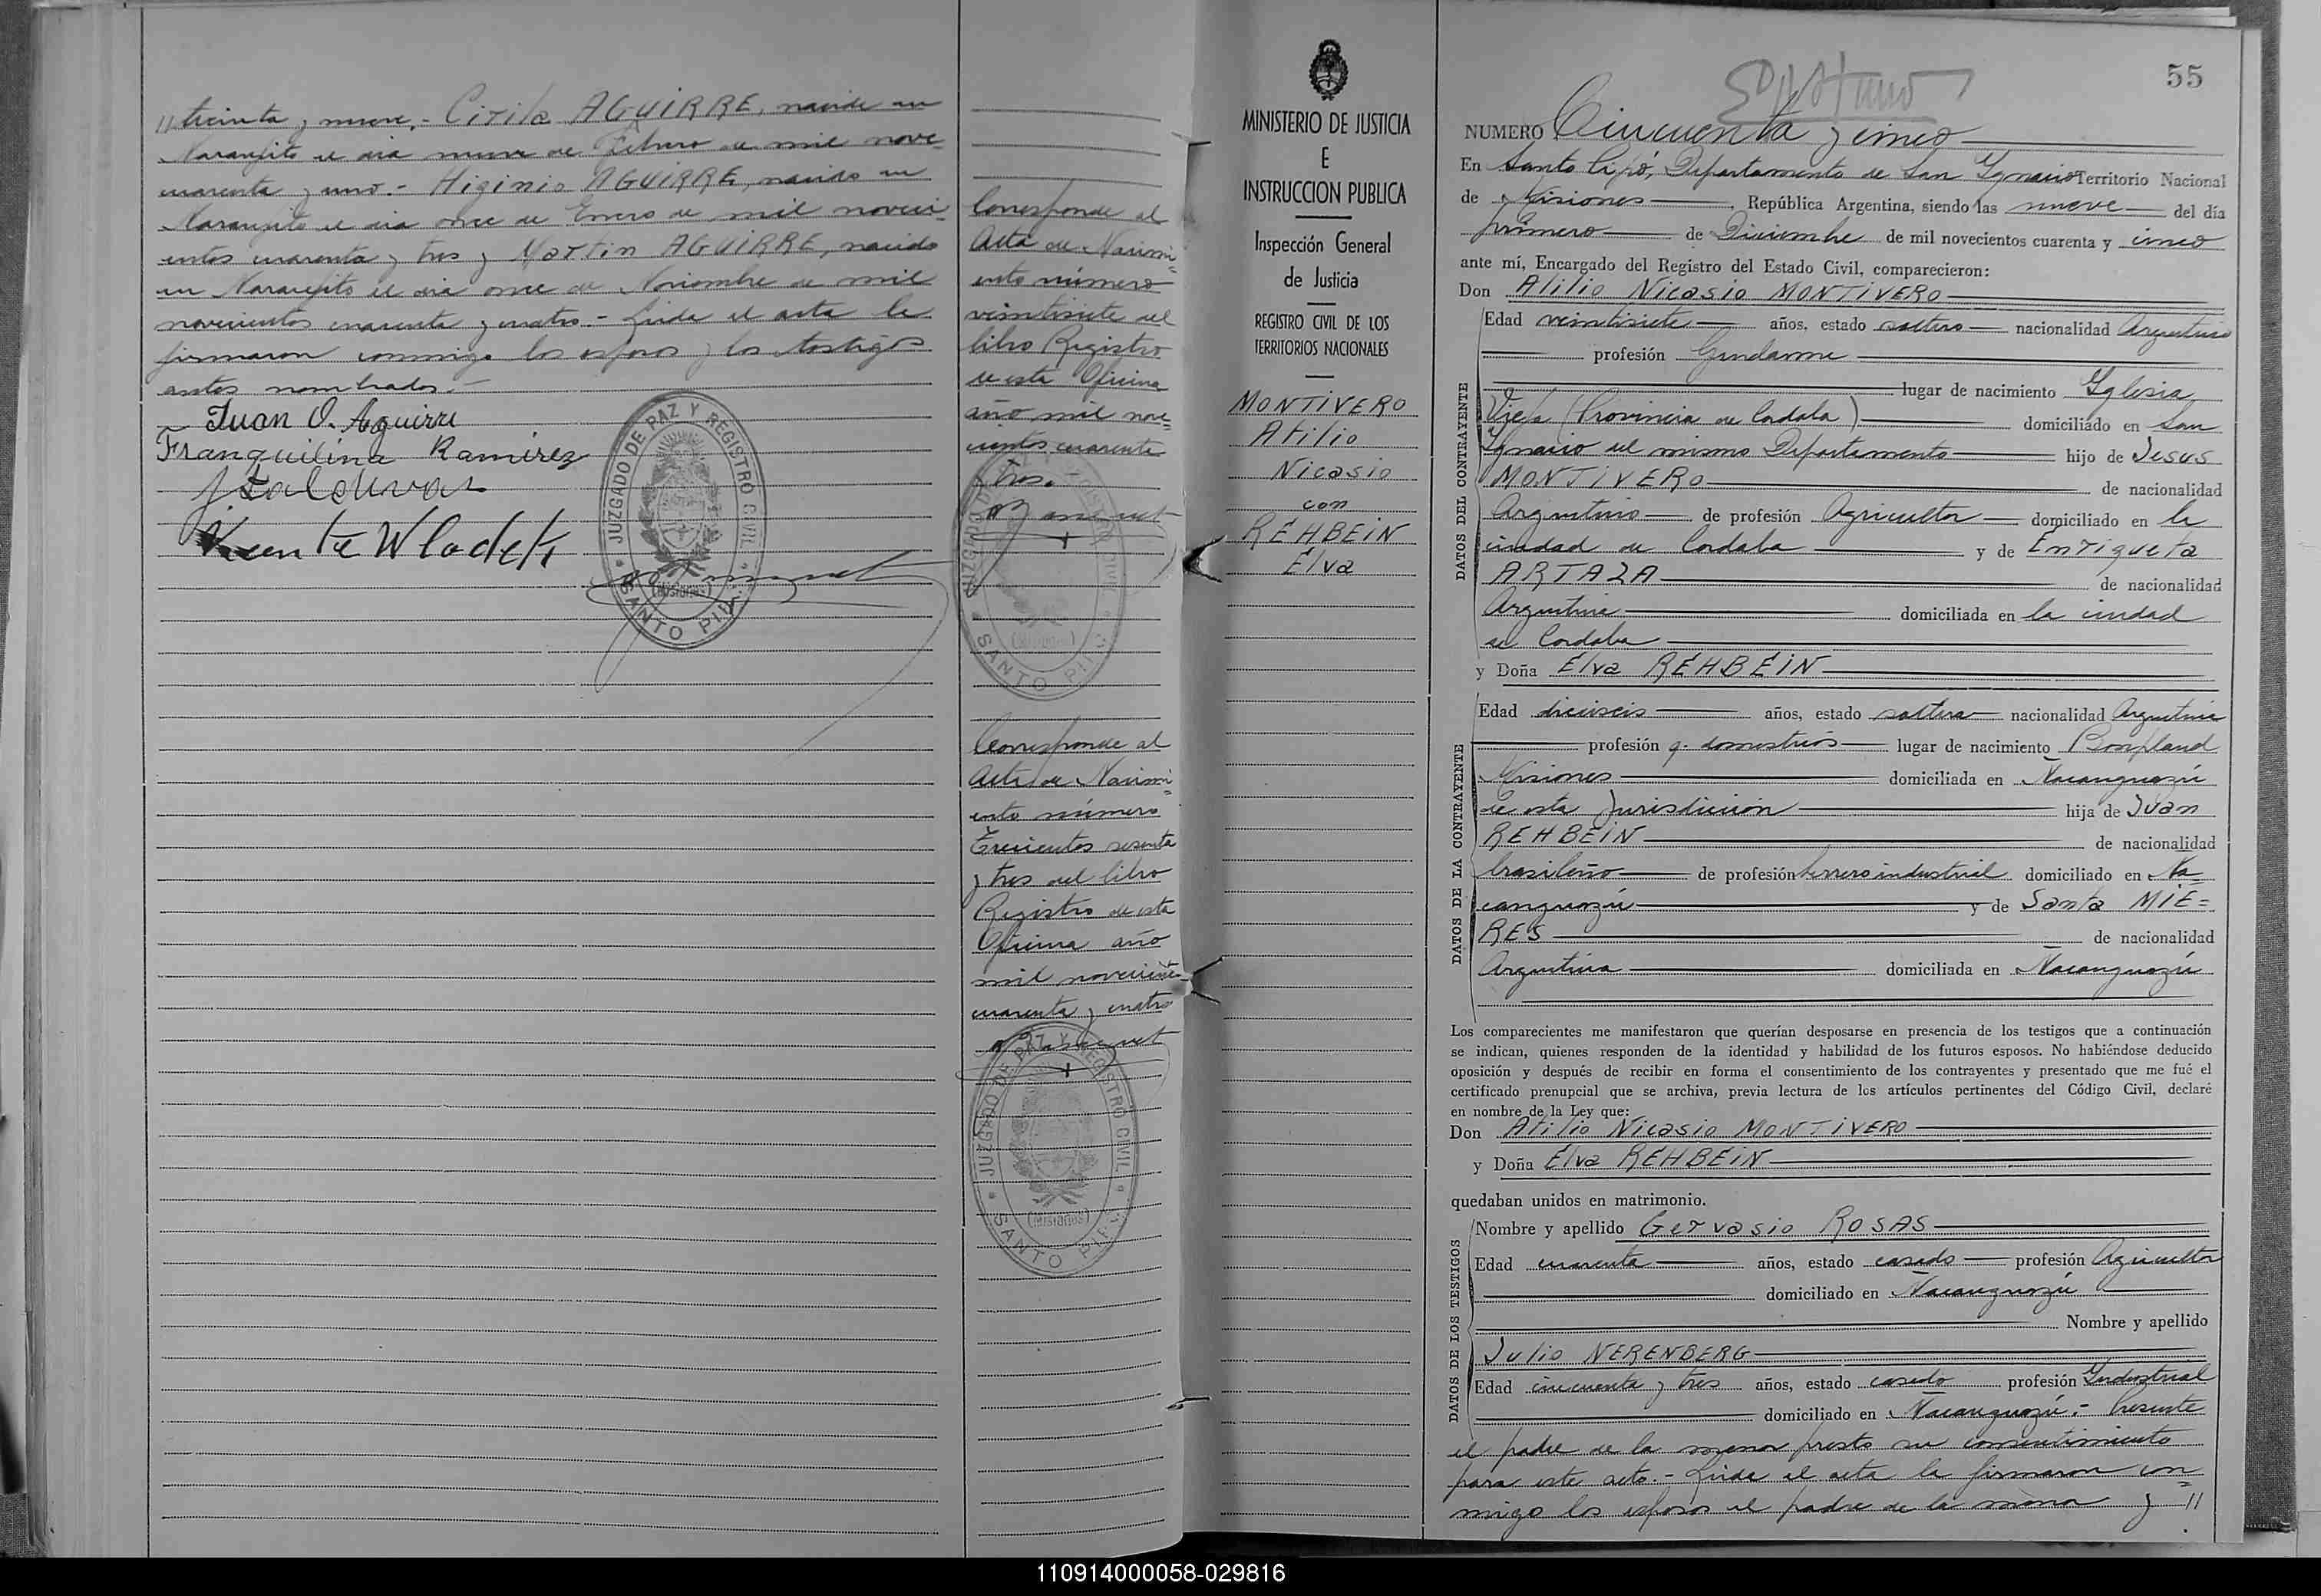 // treinta y nueve.- Cirila AGUIRRE, nacida en
Naranjito el dia nueve de Febrero de mil nove=
cuarenta y uno.- Higinio AGUIRRE, nacido en
Naranjito el dia once de Enero de mil noveci=
entos cuarenta y tres y Martin AGUIRRE, nacido
en Naranjito el dia once de Noviembre de mil
novecientos cuarenta y cuatro.- Leida el acta la
firmaron conmigo los esposos y los testigos
antes nombrados.-
Juan O. Aguirre
Franquilina Ramirez
Vicente Wladek
JUZGADO DE PAZ Y REGISTRO CIVIL
SANTO PIPÓ
(Misiones)
Corresponde al
Acta de Nacimi=
ento número
veintisiete del
libro Registro
de esta Oficina
año mil nove=
cientos cuarenta
y tres.-
JUZGADO DE PAZ Y REGISTRO CIVIL
SANTO PIPÓ
(Misiones)
Corresponde al
Acta de Nacimi=
ento número
Trecientos sesenta
y tres del libro
Registro de esta
Oficina año
mil novecientos
cuarenta y cuatro
JUZGADO DE PAZ Y REGISTRO CIVIL
SANTO PIPÓ
(Misiones)
MINISTERIO DE JUSTICIA
E
INSTRUCCION PUBLICA
Inspección General
de Justicia
REGISTRO CIVIL DE LOS
TERRITORIOS NACIONALES
MONTIVERO
Atilio
Nicasio
con
REHBEIN
Elva
55
NUMERO Cincuenta y cinco
En Santo Pipó, Departamento de San Ignacio Territorio Nacional
de Misiones, República Argentina, siendo las nueve del día
primero de Diciembre de mil novecientos cuarenta y cinco
ante mí, Encargado del Registro del Estado Civil, comparecieron:
Don Atilio Nicasio MONTIVERO
DATOS DEL CONTRAYENTE
Edad veintisiete años, estado soltero nacionalidad Argentino
profesión Gendarme
lugar de nacimiento Iglesia
Vieja (Provincia de Cordoba) domiciliado en San
Ignacio del mismo Departamento hijo de Jesus
MONTIVERO de nacionalidad
Argentino de profesión Agricultor domiciliado en la
ciudad de Cordoba y de Enriqueta
ARTAZA de nacionalidad
Argentina domiciliada en la ciudad
de Cordoba
y Doña Elva REHBEIN
DATOS DE LA CONTRAYENTE
Edad dieciseis años, estado soltera nacionalidad Argentina
profesión q. domesticos lugar de nacimiento Bonpland
Misiones domiciliada en Ñacanguazú
de esta Jurisdiccion hija de Juan
REHBEIN de nacionalidad
brasileño de profesión herrero industrial domiciliado en Ña=
canguazú y de Santa MIE=
RES de nacionalidad
Argentina domiciliada en Ñacanguazú
Los comparecientes me manifestaron que querían desposarse en presencia de los testigos que a continuación
se indican, quienes responden de la identidad y habilidad de los futuros esposos. No habiéndose deducido
oposición y después de recibir en forma el consentimiento de los contrayentes y presentado que me fué el
certificado prenupcial que se archiva, previa lectura de los artículos pertinentes del Código Civil, declaré
en nombre de la Ley que:
Don Atilio Nicasio MONTIVERO
y Doña Elva REHBEIN
quedaban unidos en matrimonio.
DATOS DE LOS TESTIGOS
Nombre y apellido Gervasio ROSAS
Edad cuarenta años, estado casado profesión Agricultor
domiciliado en Ñacanguazú
Nombre y apellido
Julio NERENBERG
Edad cincuenta y tres años, estado casado profesión Industrial
domiciliado en Ñacanguazú.- Presente
el padre de la menor presto su consentimiento
para este acto.- Leida el acta la firmaron con=
migo los esposos el padre de la menor y //
110914000058-029816